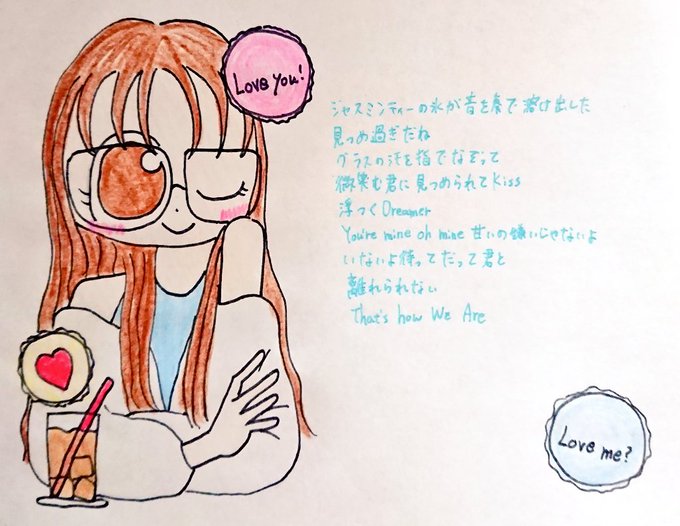 Love you!
ジャスミンティーの氷が音を奏で溶け出した
見つめ過ぎだね
グラスの汗を指でなぞって
微笑む君に見つめられてKiss
浮つくDreamer
You're mine oh mine 甘いの嫌いじゃないよ
いないよ待ってだって君と
離れられない
That's how We Are
Love me?